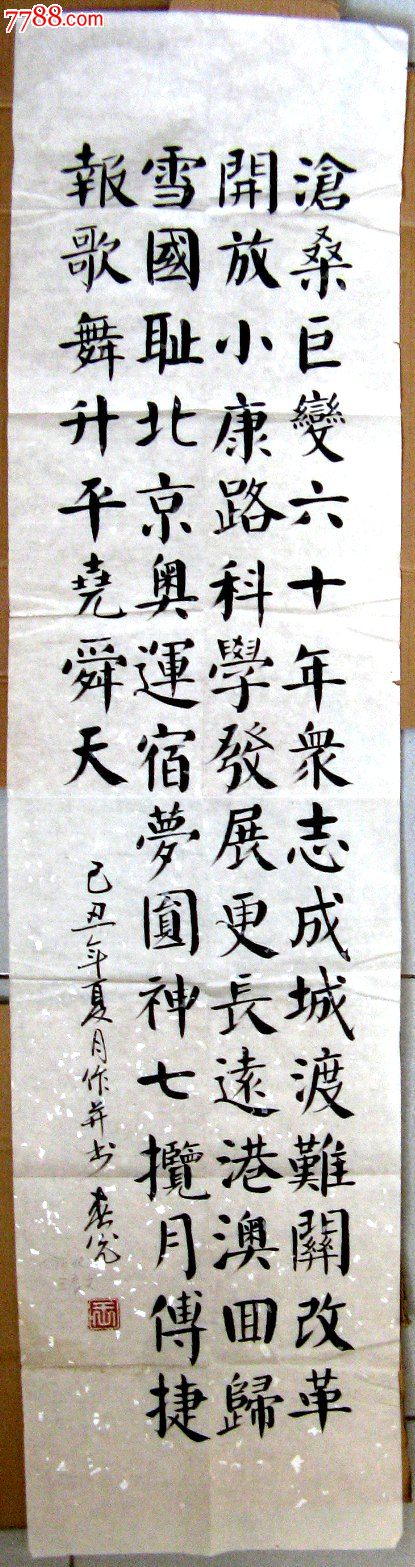 7788.com
滄桑巨變六十年衆志成城渡難關改革
開放小康路科學發展更長遠港澳回歸
雪國耻北京奧運宿夢圓神七攬月傳捷
報歌舞升平堯舜天
己丑年夏月作并书